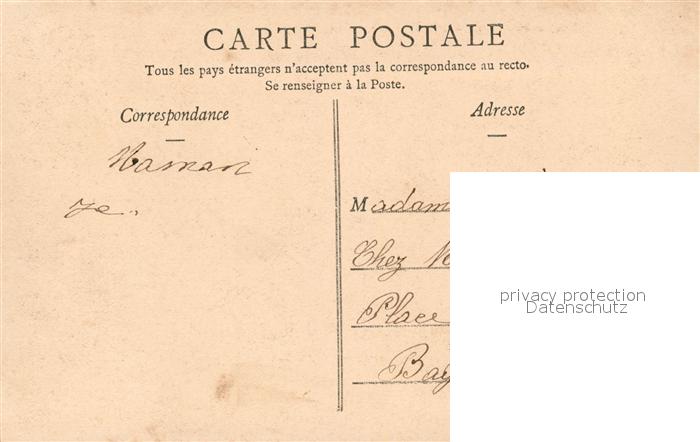 CARTE POSTALE
Tous les pays étrangers n'acceptent pas la correspondance au recto.
Se renseigner à la Poste.
Correspondance
Maman
Adresse
Madam
Chez
Place
Bay
privacy protection
Datenschutz